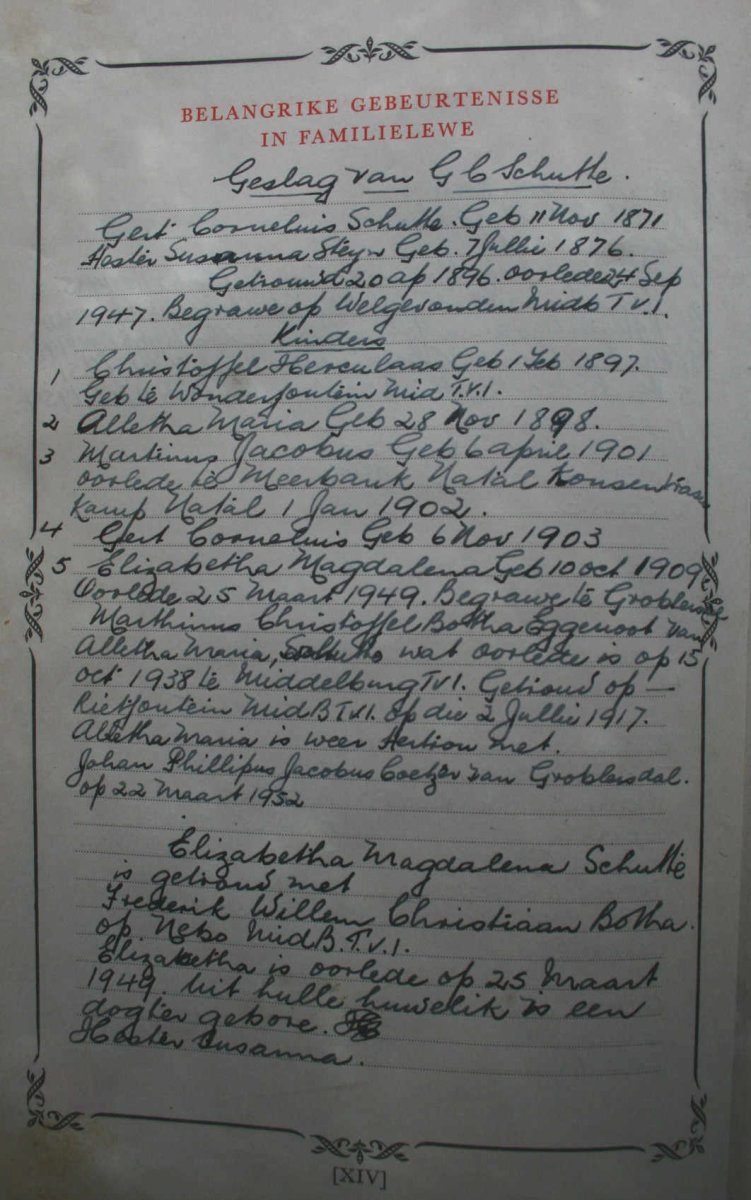 BELANGRIKE GEBEURTENISSE
IN FAMILIELEWE
Geslag van G C Schutte.
Gert Cornelius Schutte. Geb 11 Nov 1871
Hester Susanna Steyn Geb. 7 Jullie 1876.
Getroud 20 ap 1896. oorlede 24 Sep
1947. Begrawe op Welgevonden Midb T.V.l.
Kinders
1 Christoffel Herculaas Geb 1 Feb 1897.
Geb te Wonderfontein Mid T.V.l.
2 Alletha Maria Geb 28 Nov 1898.
3 Martinus Jacobus Geb 6 april 1901
oorlede te Meerbank Natal Konsentrasie
Kamp Natal 1 Jan 1902.
4 Gert Cornelius Geb 6 Nov 1903
5 Elizabetha Magdalena Geb 10 oct 1909
Oorlede 25 Maart 1949. Begrawe te Groblersdal
Marthinus Christoffel Botha Eggenoot van
Alletha Maria, Schutte wat oorlede is op 15
oct 1938 te Middelburg Tvl. Getroud op —
Rietfontein MidB T.V.l. op die 2 Jullie 1917.
Alletha Maria is weer Hertrou met.
Johan Phillipus Jacobus Coetzer van Groblersdal.
op 22 Maart 1952
Elizabetha Magdalena Schutte
is getroud met
Frederik Willem Christiaan Botha.
op Nebo MidB. T.V.l.
Elizabetha is oorlede op 25 Maart
1949. Uit hulle huwelik is een
dogter gebore.
Hester Susanna.
[XIV]